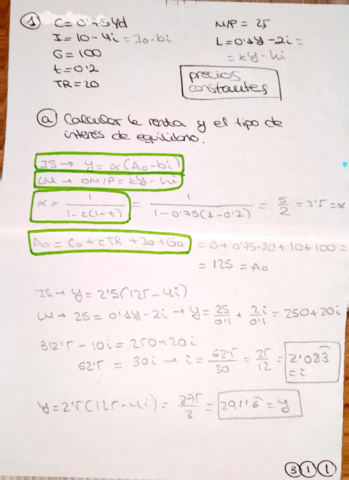 ① C = 0'75Yd M/P = 25
I = 10 - 4i = I₀ - bi L = 0'1Y - 2i =
G = 100 = kY - hi
t = 0'2 precios
TR = 20 constantes
ⓐ Calcular la renta y el tipo de
interés de equilibrio.
IS → Y = α(A₀ - bi)
LM → OM/P = kY - hi
α = 1/(1 - c(1-t)) = 1/(1 - 0'75(1 - 0'2)) = 5/2 = 2'5 = α
A₀ = C₀ + cTR + I₀ + G₀ = 0 + 0'75·20 + 10 + 100 =
= 125 = A₀
IS → Y = 2'5(125 - 4i)
LM → 25 = 0'1Y - 2i → Y = 25/0'1 + 2i/0'1 = 250 + 20i
312'5 - 10i = 250 + 20i
62'5 = 30i → i = 62'5/30 = 25/12 = 2'083
= i
Y = 2'5(125 - 4i) = 875/3 = 291'6 = Y
③①①